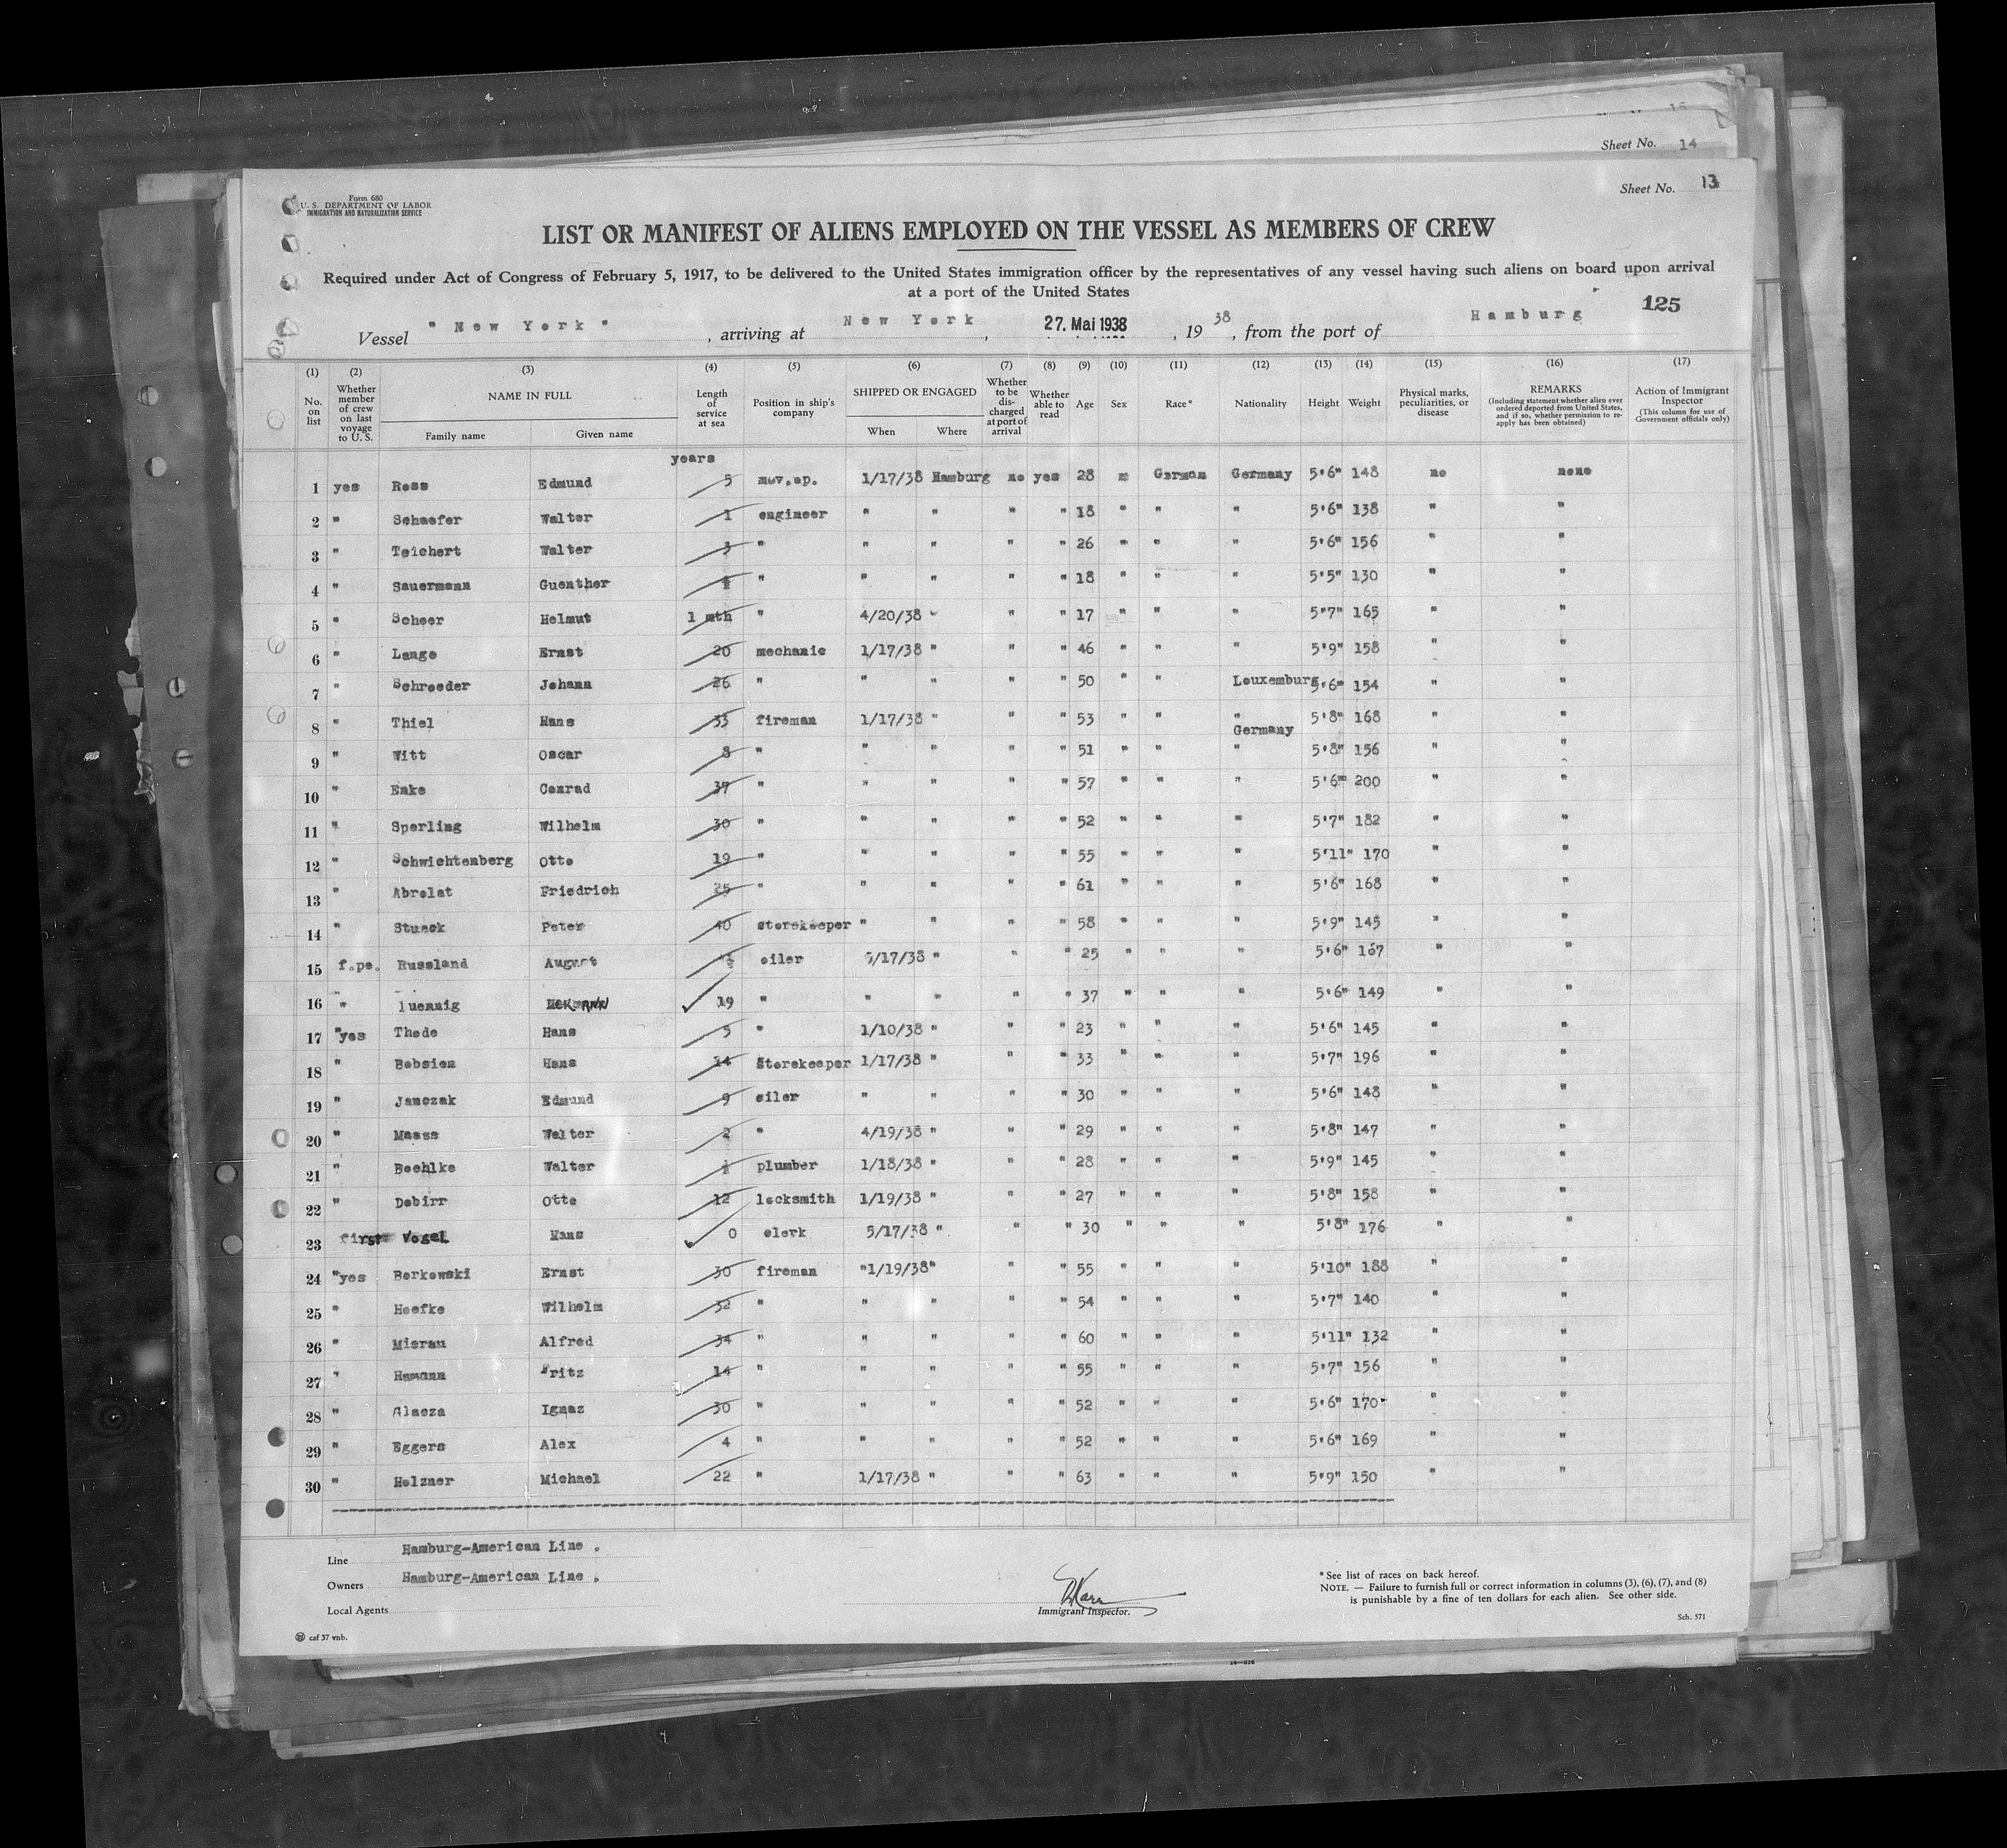 15
Sheet No. 14
Sheet No. 13
Form 680
U. S. DEPARTMENT OF LABOR
IMMIGRATION AND NATURALIZATION SERVICE
LIST OR MANIFEST OF ALIENS EMPLOYED ON THE VESSEL AS MEMBERS OF CREW
Required under Act of Congress of February 5, 1917, to be delivered to the United States immigration officer by the representatives of any vessel having such aliens on board upon arrival
at a port of the United States
125
Vessel " New York " , arriving at New York , 27. Mai 1938 , 19 38 , from the port of Hamburg
(1) (2) (3) (4) (5) (6) (7) (8) (9) (10) (11) (12) (13) (14) (15) (16) (17)
No. on list Whether member of crew on last voyage to U. S. NAME IN FULL Family name Given name Length of service at sea Position in ship's company SHIPPED OR ENGAGED When Where Whether to be discharged at port of arrival Whether able to read Age Sex Race* Nationality Height Weight Physical marks, peculiarities, or disease REMARKS (Including statement whether alien ever ordered deported from United States, and if so, whether permission to reapply has been obtained) Action of Immigrant Inspector (This column for use of Government officials only)
years
1 yes Ross Edmund 5 mov.op. 1/17/38 Hamburg no yes 28 m German Germany 5'6" 148 no none
2 " Schaefer Walter 1 engineer " " " " 18 " " " 5'6" 138 " "
3 " Teichert Walter 3 " " " " " 26 " " " 5'6" 156 " "
4 " Sauermann Guenther " " " " " 18 " " " 5'5" 130 " "
5 " Scheer Helmut 1 mth " 4/20/38 " " " 17 " " " 5"7" 165 " "
6 " Lange Ernst 20 mechanic 1/17/38 " " " 46 " " " 5'9" 158 " "
7 " Schroeder Johann 26 " " " " " 50 " " Louxemburg 5'6" 154 " "
8 " Thiel Hans 33 fireman 1/17/38 " " " 53 " " " 5'8" 168 " "
Germany
9 " Witt Oscar 8 " " " " " 51 " " " 5'8" 156 " "
10 " Enke Conrad 37 " " " " " 57 " " " 5'6" 200 " "
11 " Sperling Wilhelm 30 " " " " " 52 " " " 5'7" 182 " "
12 " Schwichtenberg Otto 19 " " " " " 55 " " " 5'11" 170 " "
13 " Abrolat Friedrich 25 " " " " " 61 " " " 5'6" 168 " "
14 " Stueck Peter 40 storekeeper " " " " 58 " " " 5'9" 145 " "
15 f.pe. Russland August oiler 5/17/38 " " " 25 " " " 5'6" 167 " "
16 " Luennig 19 " " " " " 37 " " " 5'6" 149 " "
17 "yes Thode Hans 5 " 1/10/38 " " " 23 " " " 5'6" 145 " "
18 " Bobsien Hans 14 Storekeeper 1/17/38 " " " 33 " " " 5'7" 196 " "
19 " Janczak Edmund 9 oiler " " " " 30 " " " 5'6" 148 " "
20 " Maass Walter 2 " 4/19/38 " " " 29 " " " 5'8" 147 " "
21 " Boehlke Walter plumber 1/18/38 " " " 28 " " " 5'9" 145 " "
22 " Debirr Otto 12 locksmith 1/19/38 " " " 27 " " " 5'8" 158 " "
23 first Vogel Hans 0 clerk 5/17/38 " " " 30 " " " 5'8" 176 " "
24 "yes Borkowski Ernst 30 fireman "1/19/38" " " 55 " " " 5'10" 188 " "
25 " Hoefke Wilhelm 32 " " " " " 54 " " " 5'7" 140 " "
26 " Mierau Alfred 34 " " " " " 60 " " " 5'11" 132 " "
27 " Hamann Fritz 14 " " " " " 55 " " " 5'7" 156 " "
28 " Glaeza Ignaz 30 " " " " " 52 " " " 5'6" 170 " "
29 " Eggers Alex 4 " " " " " 52 " " " 5'6" 169 " "
30 " Holzner Michael 22 " 1/17/38 " " " 63 " " " 5'9" 150 " "
Line Hamburg-American Line .
Owners Hamburg-American Line .
Local Agents
Immigrant Inspector.
* See list of races on back hereof.
NOTE. — Failure to furnish full or correct information in columns (3), (6), (7), and (8)
is punishable by a fine of ten dollars for each alien. See other side.
Sch. 571
caf 37 vnb.